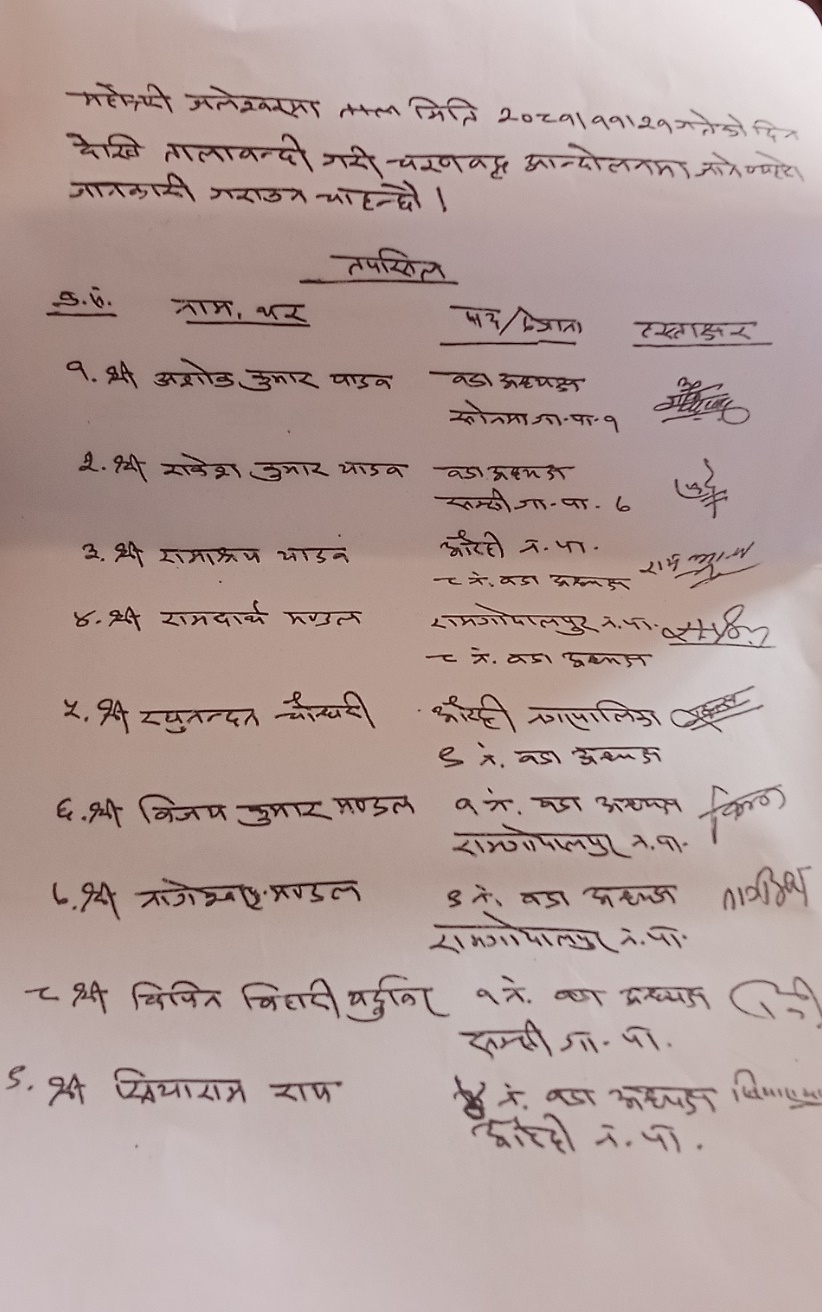 महोत्तरी जलेश्वरमा मिति २०८१।११।२१ गतेको दिन
देखि तालाबन्दी गरी चरणबद्ध आन्दोलनमा जाने व्यहोरा
जानकारी गराउन चाहन्छौ ।
तपसिल
क्र.सं. नाम, थर पद/ठेगाना हस्ताक्षर
१. श्री अशोक कुमार यादव वडा अध्यक्ष
सोनमा गा.पा. १
२. श्री राकेश कुमार यादव वडा अध्यक्ष
सम्सी गा.पा. ७
३. श्री रामाश्रय यादव औरही न.पा.
८ नं. वडा अध्यक्ष
४. श्री रामदार्थ मण्डल रामगोपालपुर न.पा.
८ नं. वडा अध्यक्ष
५. श्री रघुनन्दन चौधरी औरही नगरपालिका
९ नं. वडा अध्यक्ष
६. श्री विजय कुमार मण्डल १ नं. वडा अध्यक्ष
रामगोपालपुर न.पा.
७. श्री नागेश्वर मण्डल ९ नं. वडा अध्यक्ष
रामगोपालपुर न.पा.
८ श्री विपिन बिहारी १ नं. वडा अध्यक्ष
सम्सी गा.पा.
९. श्री सियाराम राय नं. वडा अध्यक्ष
औरही न.पा.